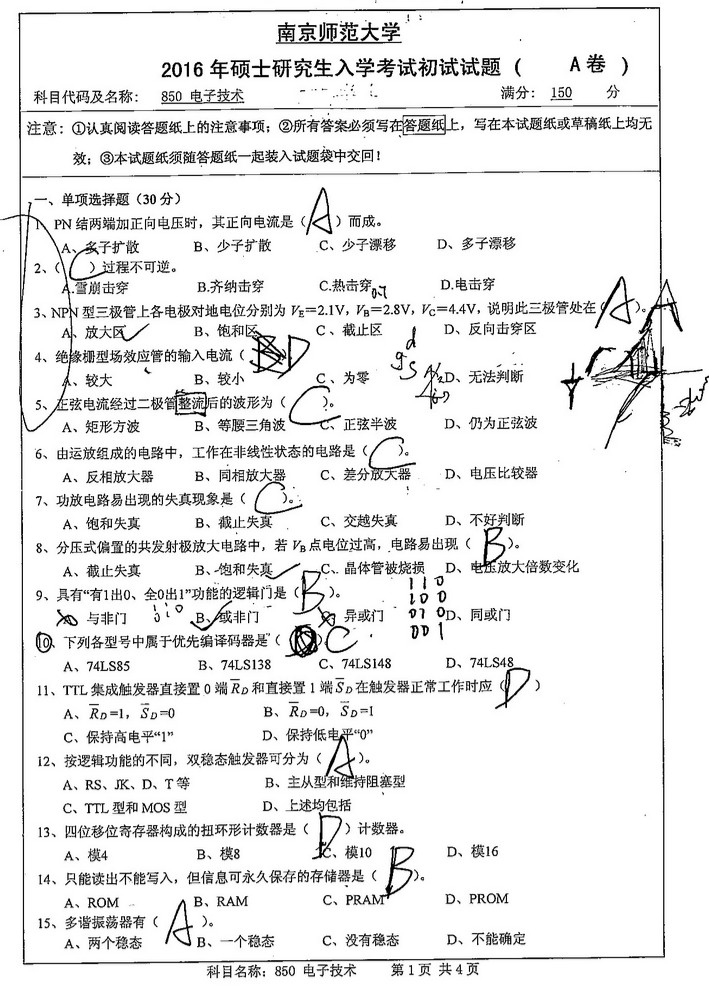 南京师范大学
2016 年硕士研究生入学考试初试试题 ( A卷 )
科目代码及名称: 850 电子技术 满分: 150 分
注意: ①认真阅读答题纸上的注意事项; ②所有答案必须写在答题纸上, 写在本试题纸或草稿纸上均无
效; ③本试题纸须随答题纸一起装入试题袋中交回!
一、单项选择题 (30分)
1、PN 结两端加正向电压时, 其正向电流是 ( A ) 而成。
A、多子扩散 B、少子扩散 C、少子漂移 D、多子漂移
2、( C ) 过程不可逆。
A.雪崩击穿 B.齐纳击穿 C.热击穿 D.电击穿
0.7
3、NPN 型三极管上各电极对地电位分别为 VE=2.1V, VB=2.8V, VC=4.4V, 说明此三极管处在 ( A )。
A、放大区 B、饱和区 C、截止区 D、反向击穿区
4、绝缘栅型场效应管的输入电流 ( D
A、较大 B、较小 C、为零 D、无法判断
g d s
5、正弦电流经过二极管整流后的波形为 ( C )。
A、矩形方波 B、等腰三角波 C、正弦半波 D、仍为正弦波
6、由运放组成的电路中, 工作在非线性状态的电路是 ( C )。
A、反相放大器 B、同相放大器 C、差分放大器 D、电压比较器
7、功放电路易出现的失真现象是 ( C )。
A、饱和失真 B、截止失真 C、交越失真 D、不好判断
8、分压式偏置的共发射极放大电路中, 若 VB 点电位过高, 电路易出现 ( B )。
A、截止失真 B、饱和失真 C、晶体管被烧损 D、电压放大倍数变化
9、具有“有1出0、全0出1”功能的逻辑门是 ( B )。
与非门 B、或非门 异或门 D、同或门
110
100
010
001
10、下列各型号中属于优先编译码器是 ( C
A、74LS85 B、74LS138 C、74LS148 D、74LS48
11、TTL 集成触发器直接置 0 端 R̅D 和直接置 1 端 S̅D 在触发器正常工作时应 ( D )
A、R̅D=1, S̅D=0 B、R̅D=0, S̅D=1
C、保持高电平“1” D、保持低电平“0”
12、按逻辑功能的不同, 双稳态触发器可分为 ( A )。
A、RS、JK、D、T 等 B、主从型和维持阻塞型
C、TTL 型和 MOS 型 D、上述均包括
13、四位移位寄存器构成的扭环形计数器是 ( D ) 计数器。
A、模4 B、模8 C、模10 D、模16
14、只能读出不能写入, 但信息可永久保存的存储器是 ( B )。
A、ROM B、RAM C、PRAM D、PROM
15、多谐振荡器有 ( A )。
A、两个稳态 B、一个稳态 C、没有稳态 D、不能确定
科目名称: 850 电子技术 第 1 页 共 4 页